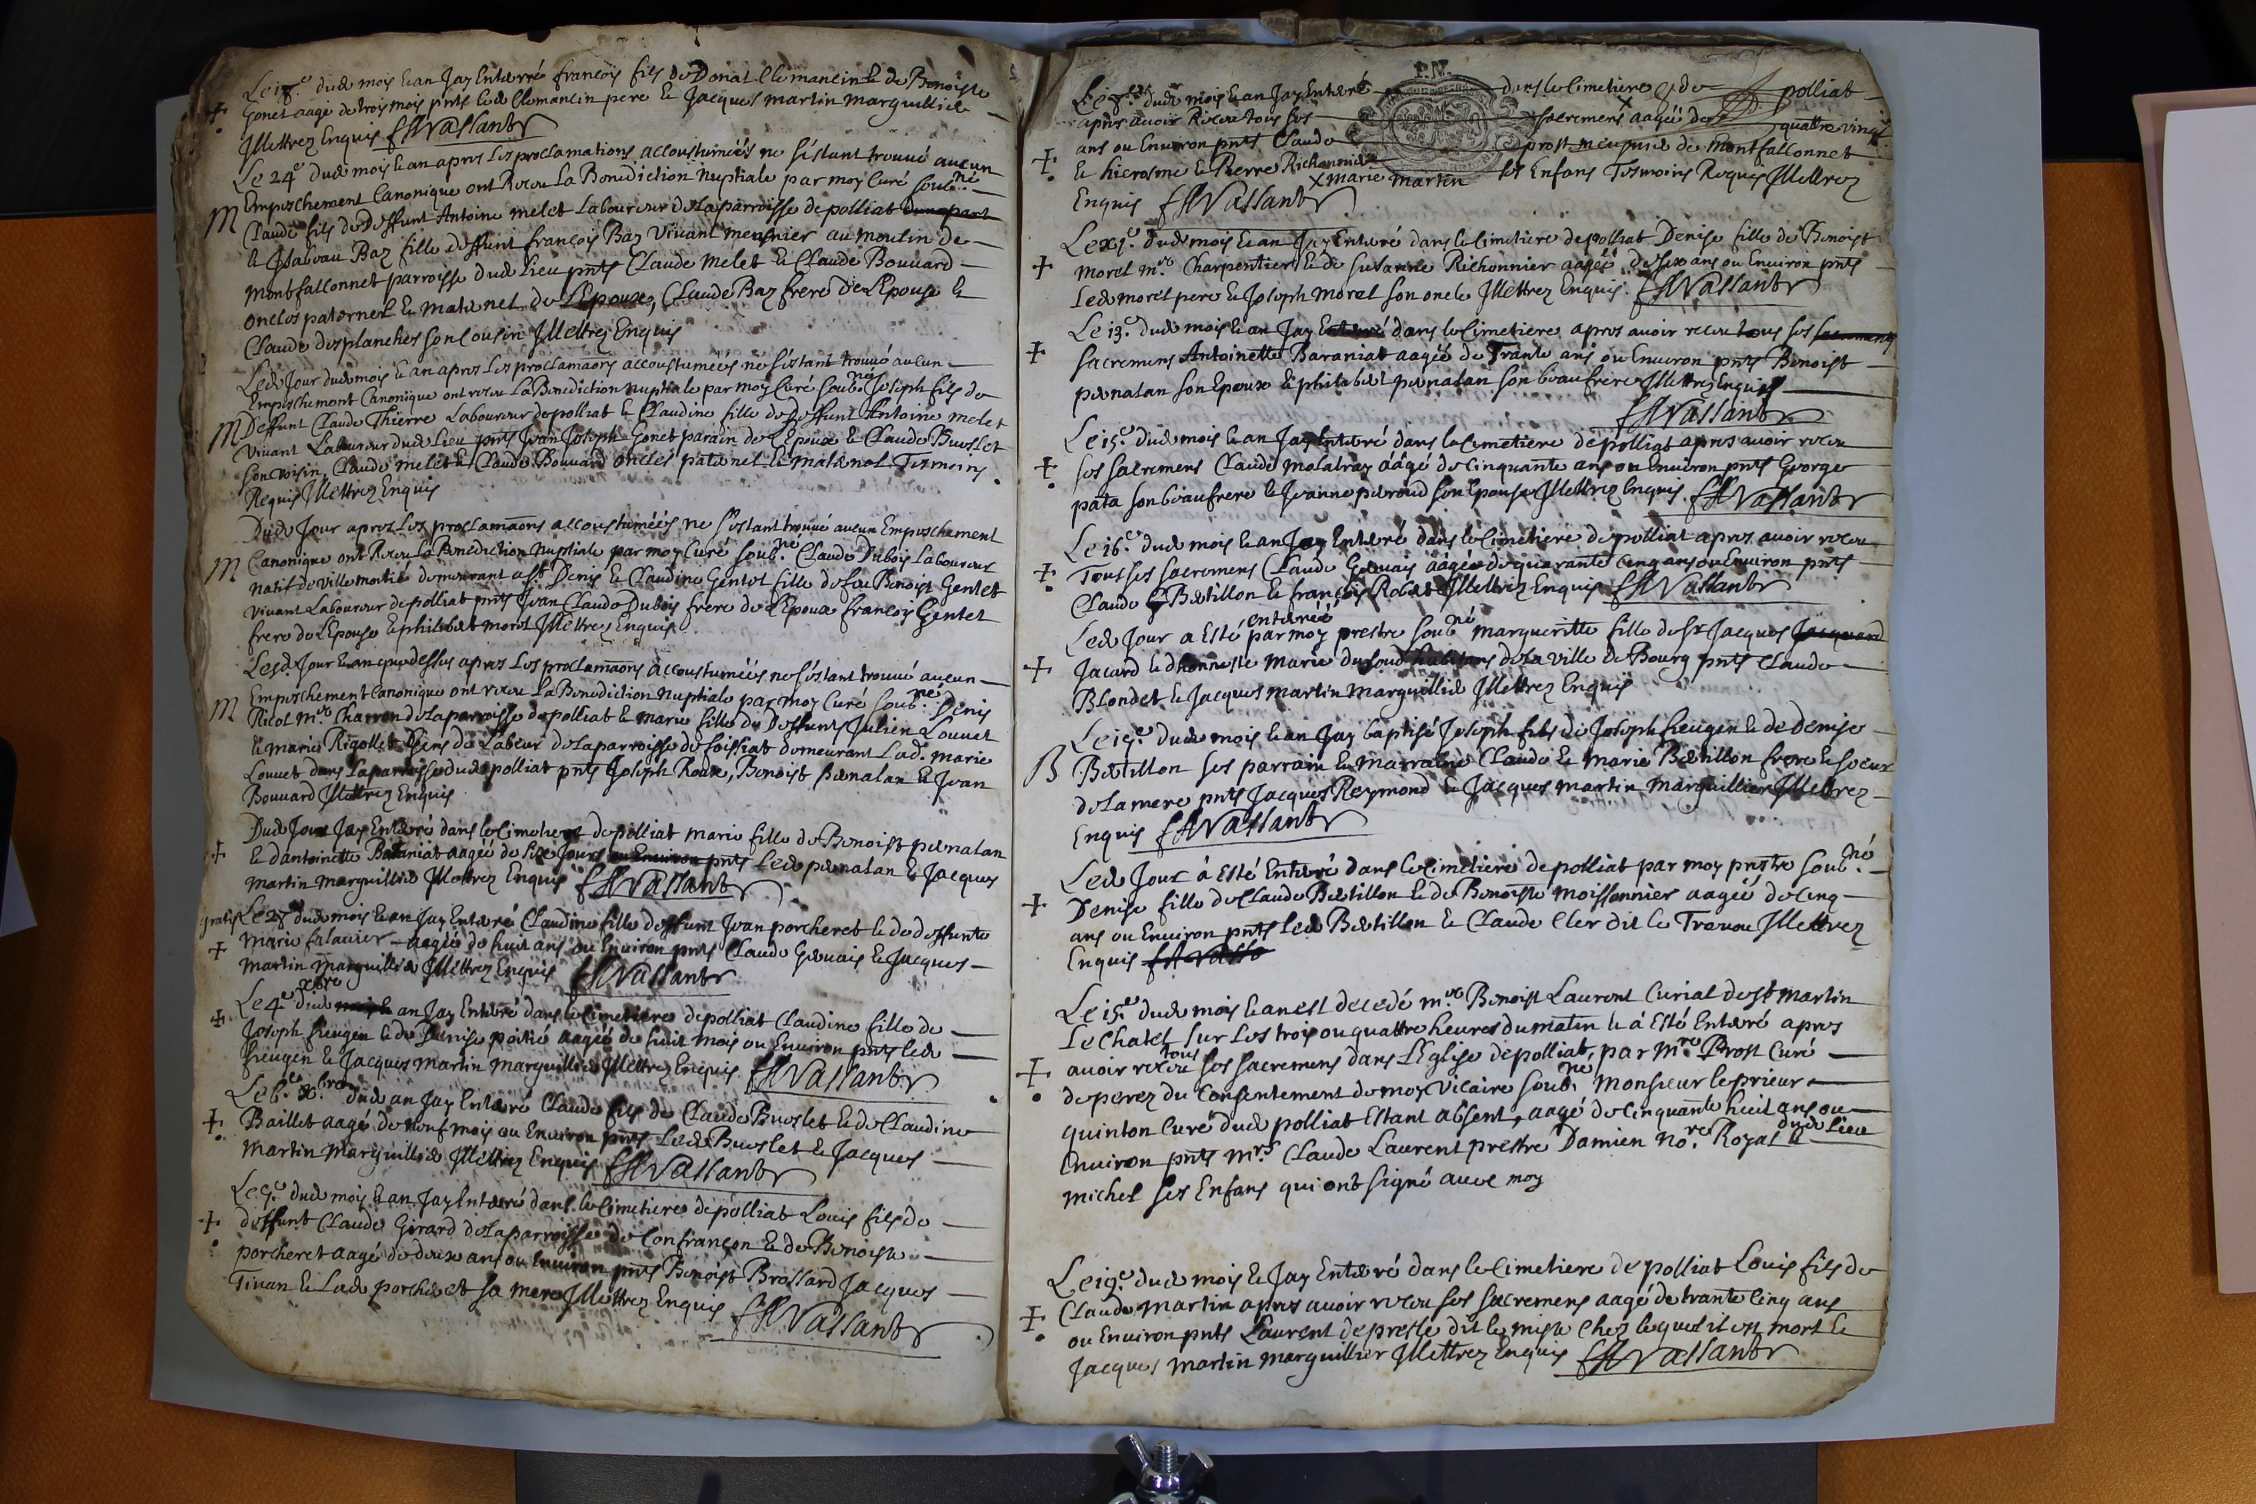 Le 18.e dud mois & an Jay Enterré françois fils de Donat Clemancin & de Benoiste
Gonet aagé de trois mois pnts led Clemancin pere & Jacques martin marguillier
Illettrez Enquis
Le 24.e dud mois & an apres les proclamations accoustumées ne s'estant trouué aucun
Empeschement Canonique ont Receu La Benediction Nuptiale par moy Curé soub.né
M Claude fils de Deffunt Antoine melet Laboureur de La parroisse de polliat
& Isabeau Baz fille deffunt françois Baz Viuant meusnier au moulin de
montfallconnet parroisse dud Lieu pnts Claude melet & Claude Bouuard
oncles paternel & maternel de L'Epoux, Claude Baz frere de L'Epouse &
Claude desplanches son Cousin Illettrez Enquis
Led Jour dud mois & an apres Les proclamaons accoustumées ne s'estant trouué aucun
Empeschement Canonique ont receu La Benediction nuptiale par moy Curé soub.né Joseph fils de
M Deffunt Claude Thierre Laboureur de polliat & Claudine fille de Deffunt Antoine melet
Viuant Laboureur dud Lieu pnts Jean Joseph Gonet parain de L'Epoux & Claude Buuslet
son voisin, Claude melet & Claude Bouuard oncles paternel & maternel Tesmoins
Requis Illettrez Enquis
Dud Jour apres Les proclamaons accoustumées ne s'estant trouué aucun Empeschement
M Canonique ont Receu La Benediction Nuptiale par moy Curé soub.né Claude Dubois Laboureur
natif de Villemotié demeurant a St Denis & Claudine Gentet fille de feu Benoist Gentet
viuant Laboureur de polliat pnts Jean Claude Dubois frere de L'Epoux françois Gentet
frere de L'Epouse & philibert moret Illettrez Enquis
Lesd. Jour & an que dessus apres Les proclamaons accoustumées ne s'estant trouué aucun
M Empeschement Canonique ont receu La Benediction Nuptiale par moy Curé soub.né Denis
Ricol M.re Charron de La parroisse de polliat & marie fille de Deffunts Julien Louuet
& marie Rigollet Gens de Labeur de La parroisse de foissiat demeurant Lad. marie
Louuet dans La parroisse dud polliat pnts Joseph Roux, Benoist pernalan & Jean
Bouuard Illettrez Enquis
Dud Jour Jay Enterré dans le Cimetiere de polliat marie fille de Benoist pernatan
& d'antoinette Baraniat aagée de six Jours pnts Led pernatan & Jacques
martin marguillier Illettrez Enquis
gratis Le 28 dud mois & an Jay Enterré Claudine fille deffunt Jean porcheret & de deffunte
marie aagée de huit ans ou Enuiron pnts Claude Geruais & Jacques
martin marguillier Illettrez Enquis
Le 4.e xbre dud an Jay Enterré dans le Cimetiere de polliat Claudine fille de
Joseph feugen & de Denise aagée de huit mois ou Enuiron pnts led
feugen & Jacques martin marguillier Illettrez Enquis
Le 6.e x.bre dud an Jay Enterré Claude fils de Claude Buuslet & de Claudine
Baillet aagé de neuf mois ou Enuiron pnts Led Buuslet & Jacques
martin marguillier Illettrez Enquis
dud mois & an Jay Enterré dans le Cimetiere de polliat Louis fils de
deffunt Claude Girard de La parroisse de Confrançon & de Benoiste
porcheret aagé de deux ans ou Enuiron pnts Benoist Brossard Jacques
Tiuan & Lad porcheret sa mere Illettrez Enquis
P.N.
Le 8.e dud mois & an Jay Enterré dans le Cimetiere de polliat
apres auoir Receu tous ses sacremens aagée de quattre vingt
ans ou Enuiron pnts Claude prost meusnier de montfallconnet
& hierosme & Pierre Richonnier ses Enfans Tesmoins Requis Illettrez
x marie martin
Enquis
Le xi.e dud mois & an Jay Enterré dans le Cimetiere de polliat Denise fille de Benoist
Morel m.re Charpentier & de susanne Richonnier aagée de six ans ou Enuiron pnts
Led morel pere & Joseph Morel son oncle Illettrez Enquis
Le 13.e dud mois & an Jay Enterré dans le Cimetiere apres auoir receu tous ses
sacremens Antoinette Baraniat aagée de Trante ans ou Enuiron pnts Benoist
pernatan son Epoux & philibert pernatan son beaufrere Illettrez Enquis
Le 15.e dud mois & an Jay Enterré dans le Cimetiere de polliat apres auoir receu
ses sacremens Claude aagé de Cinquante ans ou Enuiron pnts George
pata son beaufrere & Jeanne peroud son Epouse Illettrez Enquis
Le 16.e dud mois & an Jay Enterré dans le Cimetiere de polliat apres auoir receu
Tous ses sacremens Claude Geruais aagée de quarante Cinq ans ou Enuiron pnts
Claude Bertillon & françois Robert Illettrez Enquis
Led Jour a Esté enterrée par moy prestre soub.né margueritte fille de Sr Jacques
Jacard & d'honneste Marie dufour habitans de La ville de Bourg pnts Claude
Blondet & Jacques martin Marguillier Illettrez Enquis
dud mois & an Jay baptisé Joseph fils de Joseph feugen & de Denise
B Bertillon ses parrain & marraine Claude & Marie Bertillon frere & soeur
de La mere pnts Jacques Reymond & Jacques martin marguillier Illettrez
Enquis
Led Jour à Esté Enterré dans le Cimetiere de polliat par moy prestre soub.né
Denise fille de Claude Bertillon & de Benoiste moissonnier aagée de Cinq
ans ou Enuiron pnts Led Bertillon & Claude Cler dit Le Illettrez
Enquis
dud mois & an est decedé m.re Benoist Laurent Curial de St martin
Le Chatel sur Les trois ou quattre heures du matin & à Esté Enterré apres
auoir receu tous ses sacremens dans L'Eglise de polliat, par M.re Prost Curé
de perez du Consentement de moy Vicaire soub.né Monsieur le prieur
quinton Curé dud polliat Estant absent, aagé de Cinquante huit ans ou
Enuiron pnts Mrs Claude Laurent prestre Damien No.re Royal dud Lieu &
michel ses Enfans qui ont signé auec moy
Le 19.e dud mois & Jay Enterré dans le Cimetiere de polliat Louis fils de
Claude Martin apres auoir receu ses sacremens aagé de trante Cinq ans
ou Enuiron pnts Laurent depresle dit le miste Chez lequel il est mort &
Jacques Martin marguillier Illettrez Enquis